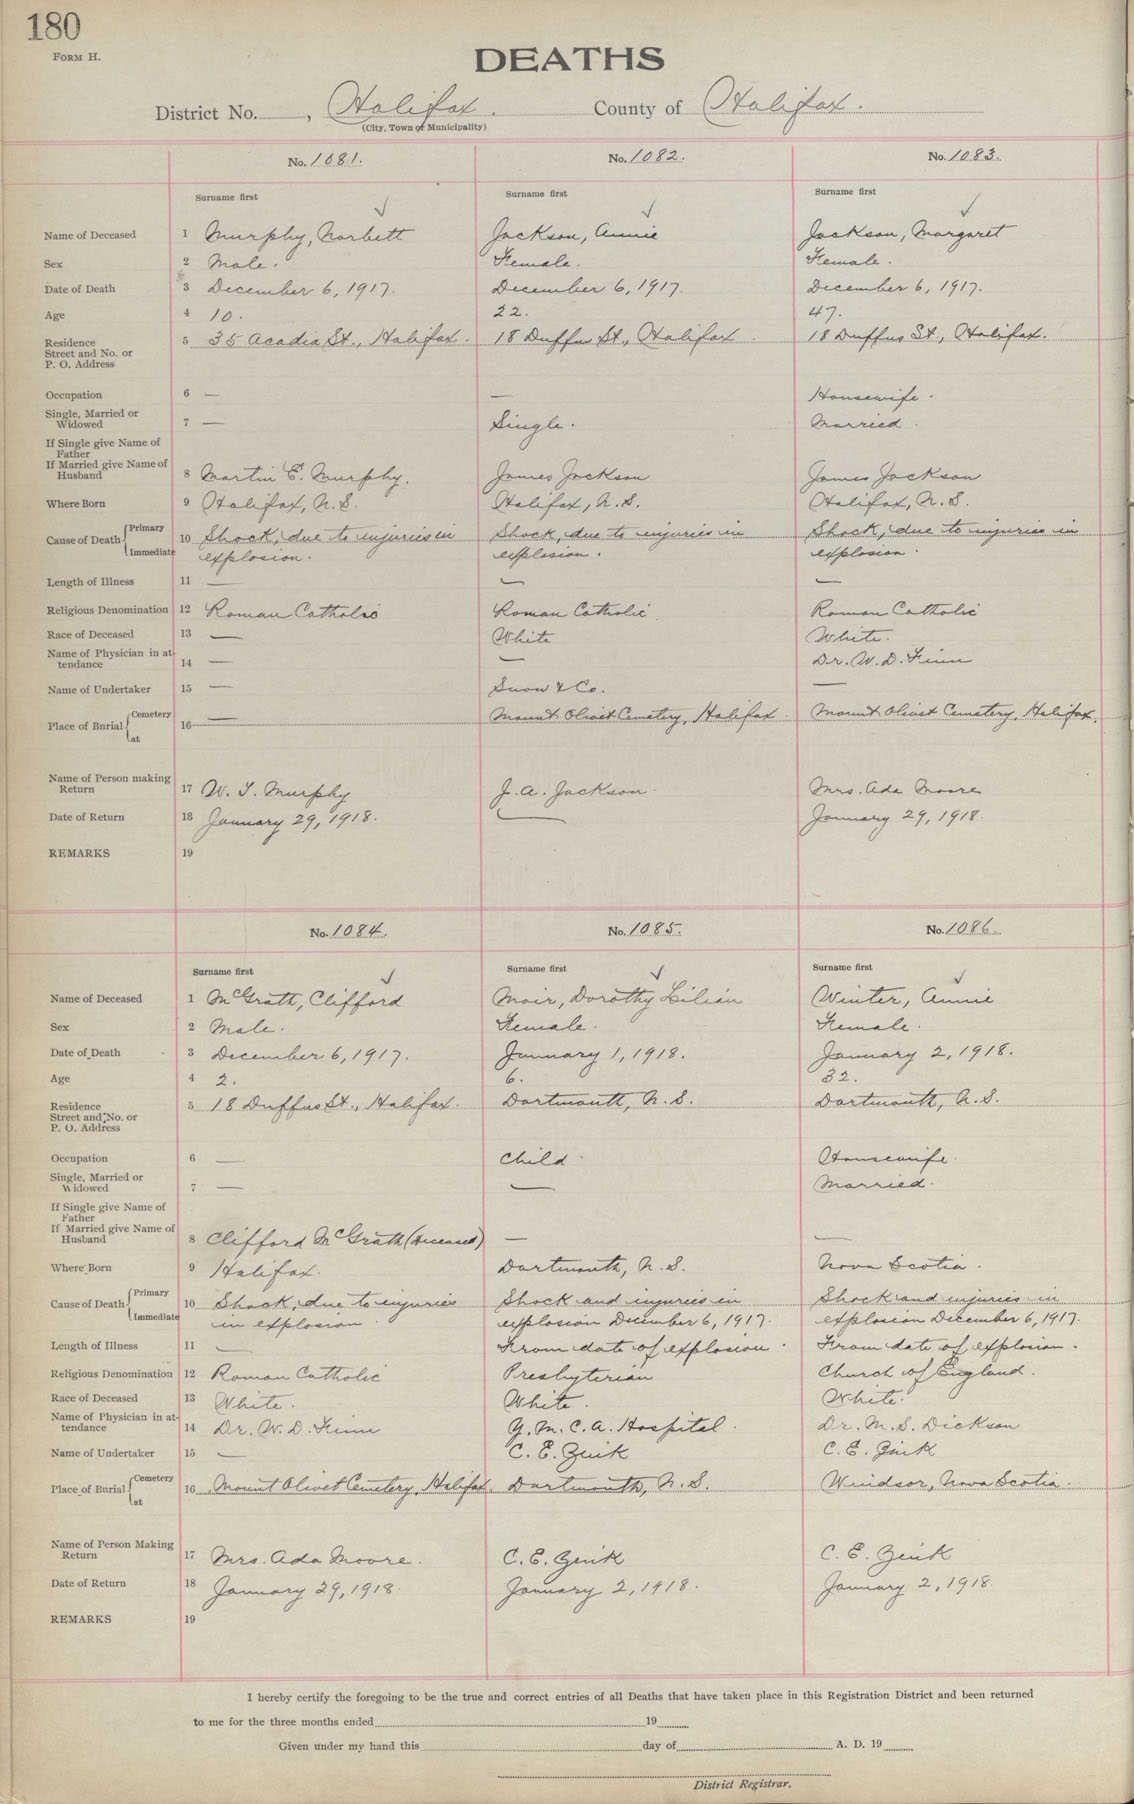 180
FORM H.
DEATHS
District No. , Halifax. County of Halifax.
(City, Town or Municipality)
No. 1081. No. 1082. No. 1083.
Surname first Surname first Surname first
Name of Deceased 1 Murphy, Norbett Jackson, Annie Jackson, Margaret
Sex 2 Male. Female. Female.
Date of Death 3 December 6, 1917. December 6, 1917. December 6, 1917.
Age 4 10. 22. 47.
Residence
Street and No. or 5 35 Acadia St., Halifax. 18 Duffus St., Halifax 18 Duffus St., Halifax.
P. O. Address
Occupation 6 — — Housewife.
Single, Married or
Widowed 7 — Single. Married.
If Single give Name of
Father
If Married give Name of
Husband 8 Martin E. Murphy. James Jackson James Jackson
Where Born 9 Halifax, N.S. Halifax, N.S. Halifax, N.S.
Cause of Death Primary 10 Shock, due to injuries in Shock, due to injuries in Shock, due to injuries in
Immediate explosion. explosion. explosion.
Length of Illness 11 — — —
Religious Denomination 12 Roman Catholic Roman Catholic Roman Catholic
Race of Deceased 13 — White White.
Name of Physician in at-
tendance 14 — — Dr. W. D. Finn
Name of Undertaker 15 — Snow & Co. —
Place of Burial Cemetery at 16 — Mount Olivet Cemetery, Halifax. Mount Olivet Cemetery, Halifax.
Name of Person making
Return 17 W. J. Murphy J. A. Jackson Mrs. Ada Moore
Date of Return 18 January 29, 1918. — January 29, 1918.
REMARKS 19
No. 1084. No. 1085. No. 1086.
Surname first Surname first Surname first
Name of Deceased 1 McGrath, Clifford Moir, Dorothy Lilian Winter, Annie
Sex 2 Male. Female. Female.
Date of Death 3 December 6, 1917. January 1, 1918. January 2, 1918.
Age 4 2. 6. 32.
Residence
Street and No. or 5 18 Duffus St., Halifax. Dartmouth, N.S. Dartmouth, N.S.
P. O. Address
Occupation 6 — Child Housewife.
Single, Married or
Widowed 7 — — Married.
If Single give Name of
Father
If Married give Name of
Husband 8 Clifford McGrath (deceased) — —
Where Born 9 Halifax. Dartmouth, N.S. Nova Scotia.
Cause of Death Primary 10 Shock, due to injuries Shock and injuries in Shock and injuries in
Immediate in explosion explosion December 6, 1917. explosion December 6, 1917.
Length of Illness 11 — From date of explosion. From date of explosion.
Religious Denomination 12 Roman Catholic Presbyterian Church of England.
Race of Deceased 13 White. White. White.
Name of Physician in at-
tendance 14 Dr. W. D. Finn Y. M. C. A. Hospital. Dr. M. S. Dickson
Name of Undertaker 15 — C. E. Zink C. E. Zink
Place of Burial Cemetery at 16 Mount Olivet Cemetery, Halifax. Dartmouth, N.S. Windsor, Nova Scotia.
Name of Person Making
Return 17 Mrs. Ada Moore. C. E. Zink C. E. Zink
Date of Return 18 January 29, 1918. January 2, 1918. January 2, 1918.
REMARKS 19
I hereby certify the foregoing to be the true and correct entries of all Deaths that have taken place in this Registration District and been returned
to me for the three months ended 19
Given under my hand this day of A. D. 19
District Registrar.